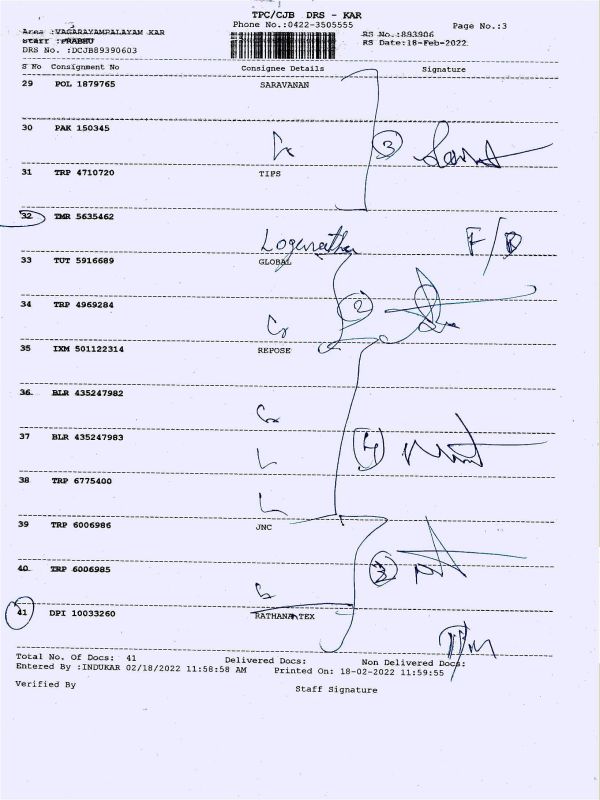 TPC/CJB DRS - KAR
Phone No.:0422-3505555 Page No.:3
Area :VAGARAYAMPALAYAM KAR RS No.:893906
Staff :PRABHU RS Date:18-Feb-2022
DRS No. :DCJB89390603
S No Consignment No Consignee Details Signature
29 POL 1879765 SARAVANAN
30 PAK 150345
3
31 TRP 4710720 TIPS
32 TMR 5635462
Loganathan F/D
33 TUT 5916689 GLOBAL
34 TRP 4969284 2
35 IXM 501122314 REPOSE
36 BLR 435247982
37 BLR 435247983 4
38 TRP 6775400
39 TRP 6006986 JNC
40 TRP 6006985
41 DPI 10033260 RATHANA TEX
Total No. Of Docs: 41 Delivered Docs: Non Delivered Docs:
Entered By :INDUKAR 02/18/2022 11:58:58 AM Printed On: 18-02-2022 11:59:55
Verified By Staff Signature